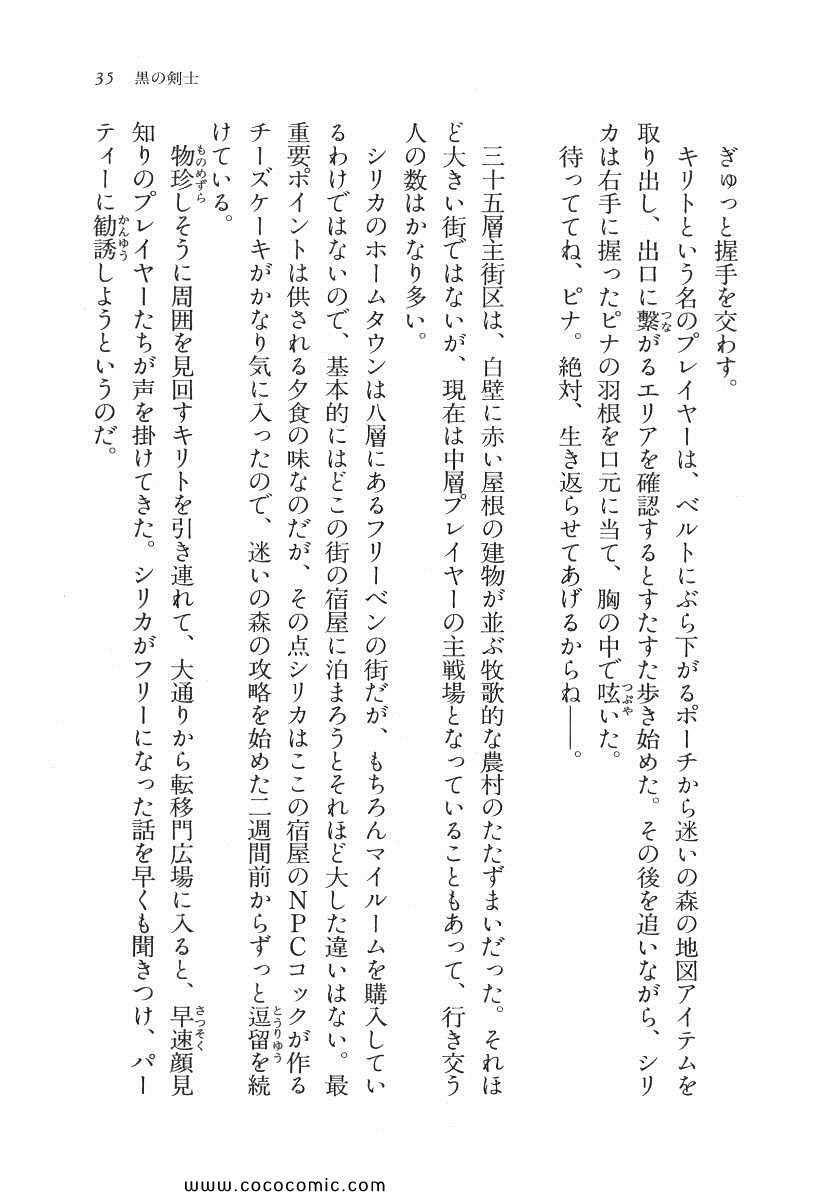 35 黒の剣士
ぎゅっと握手を交わす。
キリトという名のプレイヤーは、ベルトにぶら下がるポーチから迷いの森の地図アイテムを
取り出し、出口に繋がるエリアを確認するとすたすた歩き始めた。その後を追いながら、シリ
カは右手に握ったピナの羽根を口元に当て、胸の中で呟いた。
待っててね、ピナ。絶対、生き返らせてあげるからね──。
三十五層主街区は、白壁に赤い屋根の建物が並ぶ牧歌的な農村のたたずまいだった。それほ
ど大きい街ではないが、現在は中層プレイヤーの主戦場となっていることもあって、行き交う
人の数はかなり多い。
シリカのホームタウンは八層にあるフリーベンの街だが、もちろんマイルームを購入してい
るわけではないので、基本的にはどこの街の宿屋に泊まろうとそれほど大した違いはない。最
重要ポイントは供される夕食の味なのだが、その点シリカはここの宿屋のNPCコックが作る
チーズケーキがかなり気に入ったので、迷いの森の攻略を始めた二週間前からずっと逗留を続
けている。
物珍しそうに周囲を見回すキリトを引き連れて、大通りから転移門広場に入ると、早速顔見
知りのプレイヤーたちが声を掛けてきた。シリカがフリーになった話を早くも聞きつけ、パー
ティーに勧誘しようというのだ。
www.cococomic.com